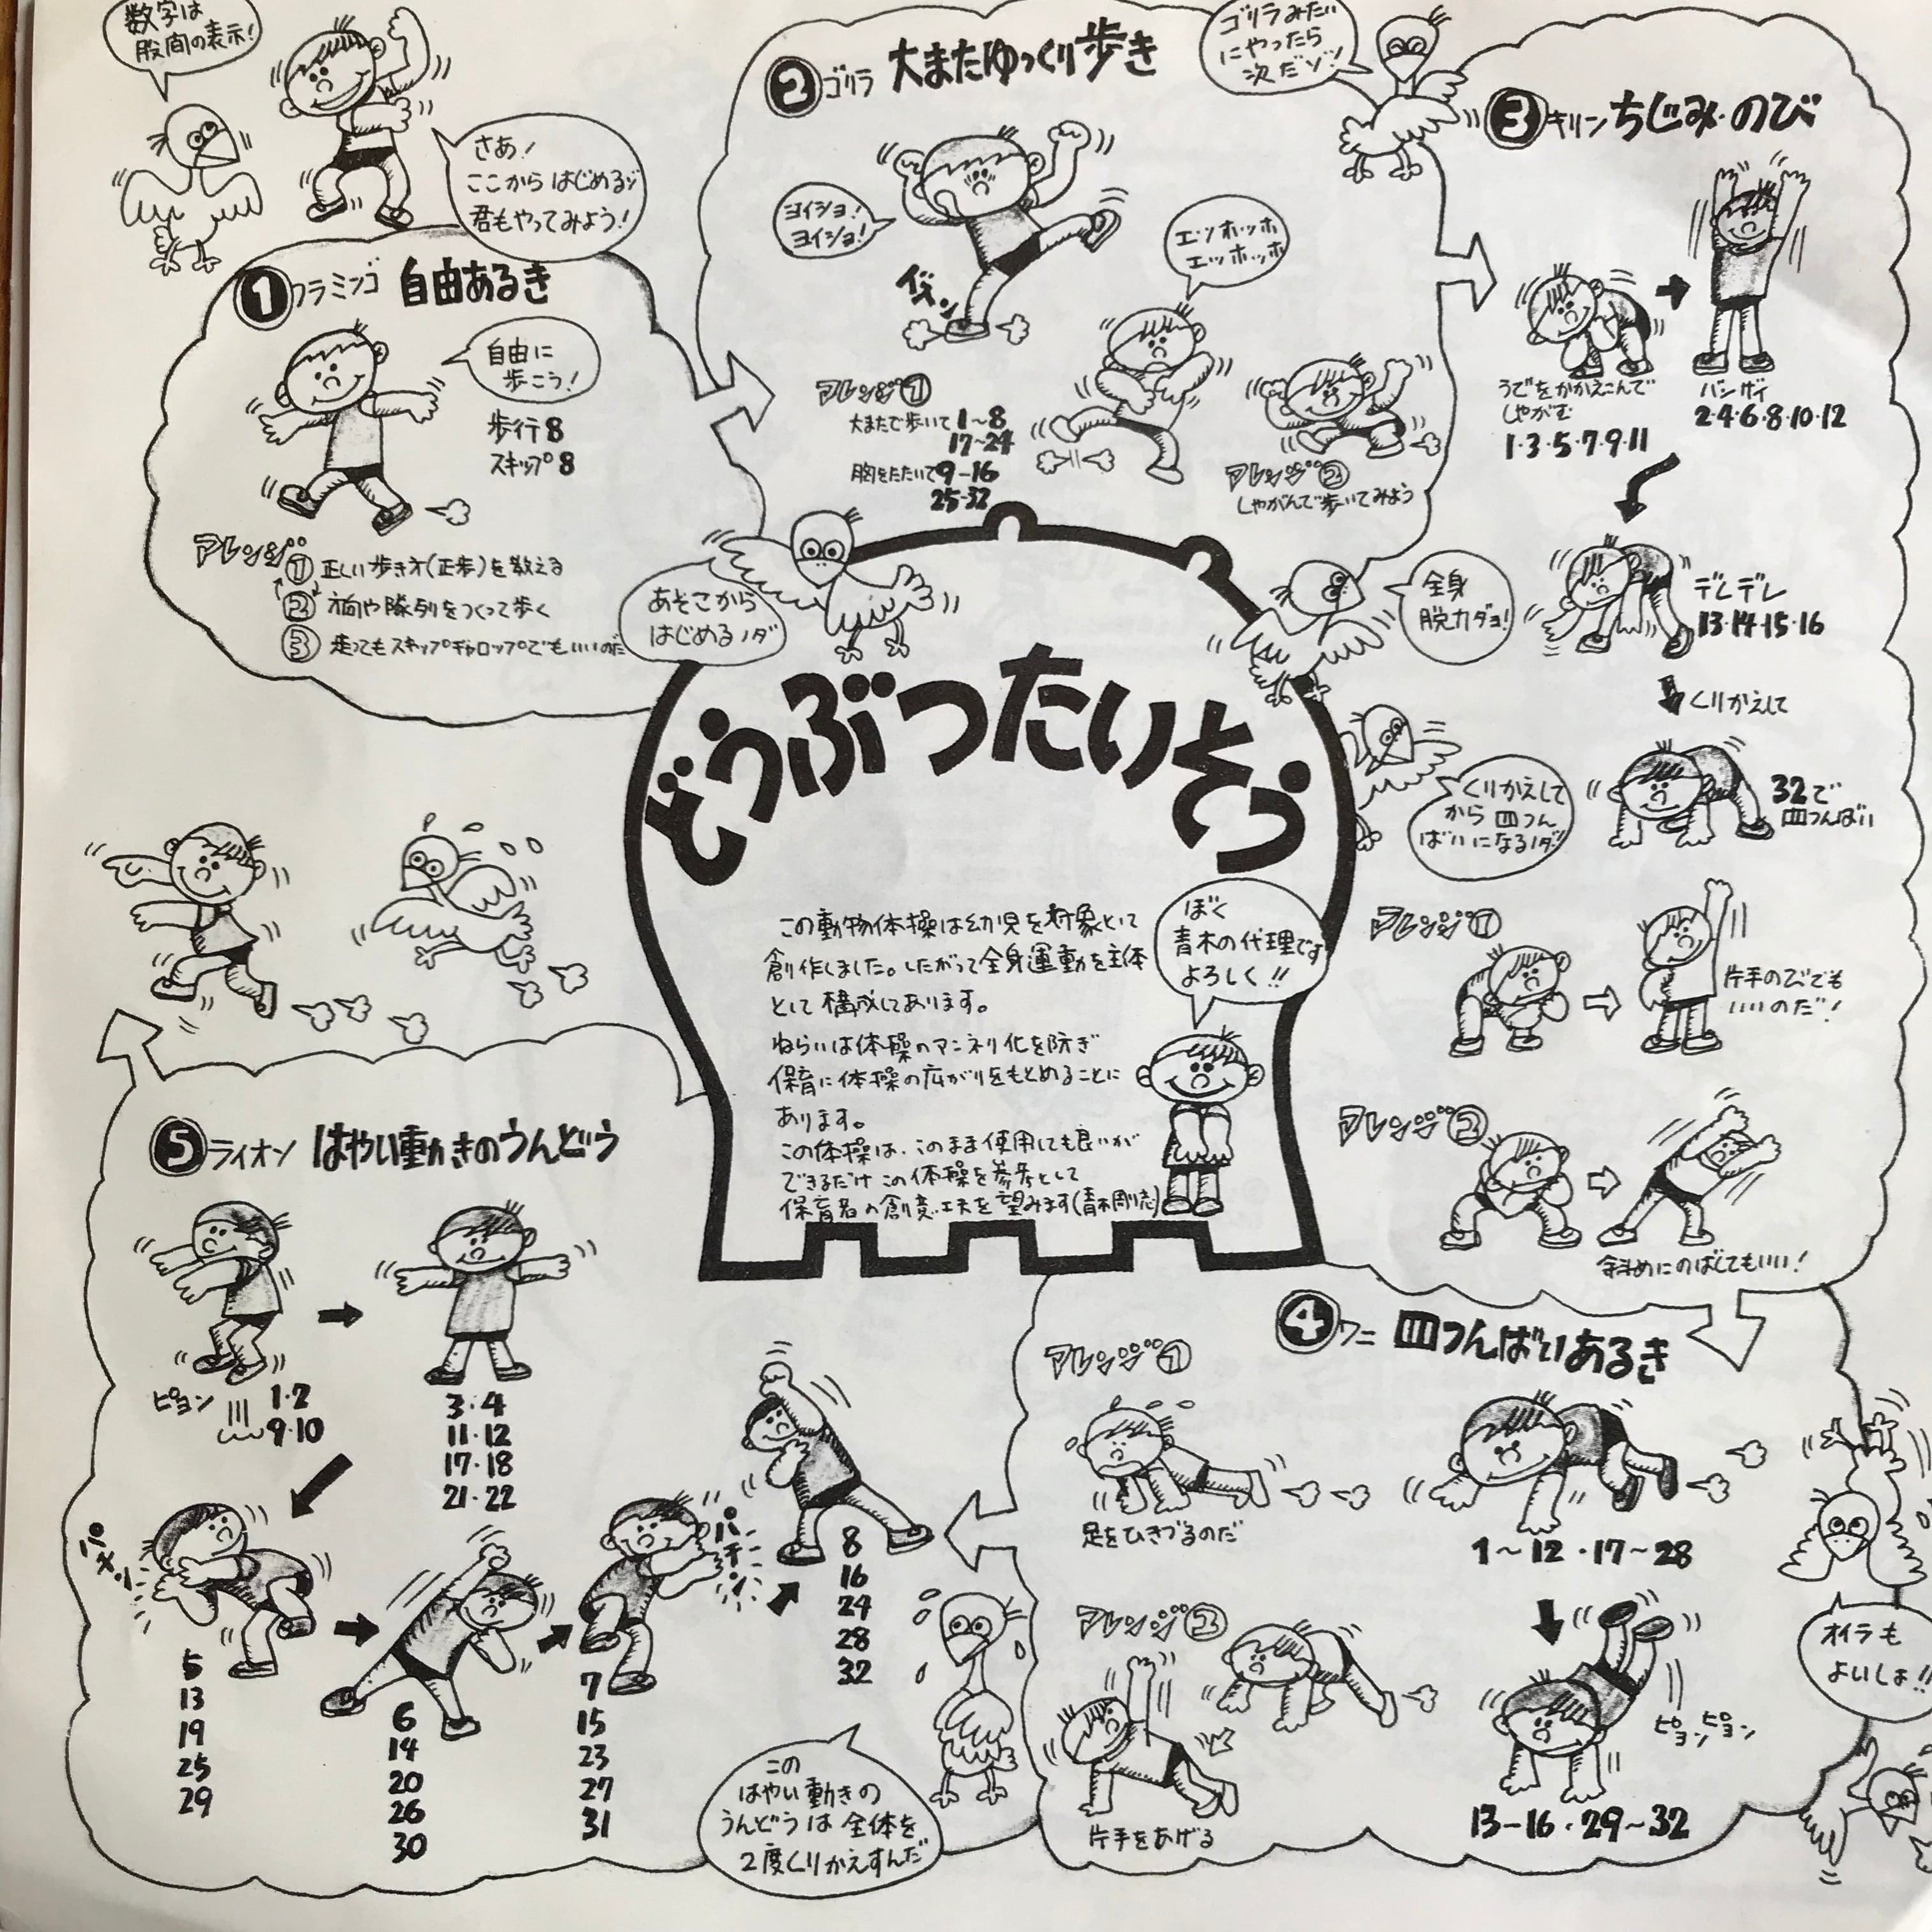 数字は
股間の表示!
さあ!
ここからはじめるゾ
君もやってみよう!
❶フラミンゴ 自由あるき
自由に
歩こう!
歩行8
スキップ8
アレンジ
①正しい歩き方(正歩)を教える
②方向や隊列をつくって歩く
③走ってもスキップギャロップでもいいのだ
❷ゴリラ 大またゆっくり歩き
ヨイショ!
ヨイショ!
エッホッホ
エッホッホ
アレンジ①
大またで歩いて1~8
17~24
胸をたたいて9-16
25-32
アレンジ②
しゃがんで歩いてみよう
ゴリラみたい
にやったら
次だゾ!
❸キリン ちぢみ・のび
うでをかかえこんで
しゃがむ
1・3・5・7・9・11
バンザイ
2・4・6・8・10・12
全身
脱力ダヨ!
デレデレ
13・14・15・16
くりかえして
くりかえして
から四つん
ばいになるノダ!
32で
四つんばい
アレンジ①
片手のびでも
いいのだ!
アレンジ②
斜めにのばしてもいい!
あそこから
はじめるノダ
どうぶつたいそう
この動物体操は幼児を対象として
創作しました。したがって全身運動を主体
として構成してあります。
ねらいは体操のマンネリ化を防ぎ
保育に体操の広がりをもとめることに
あります。
この体操は、このまま使用しても良いが
できるだけこの体操を参考として
保育者の創意工夫を望みます(青木剛志)
ぼく
青木の代理です
よろしく!!
❹ワニ 四つんばいあるき
アレンジ①
足をひきづるのだ
1~12・17~28
アレンジ②
片手をあげる
ピョンピョン
13-16・29~32
オイラも
よいしょ!!
❺ライオン はやい動きのうんどう
ピョン
1・2
9・10
3・4
11・12
17・18
21・22
パチン
5
13
19
25
29
6
14
20
26
30
パチン
7
15
23
27
31
8
16
24
28
32
この
はやい動きの
うんどうは全体を
2度くりかえすんだ